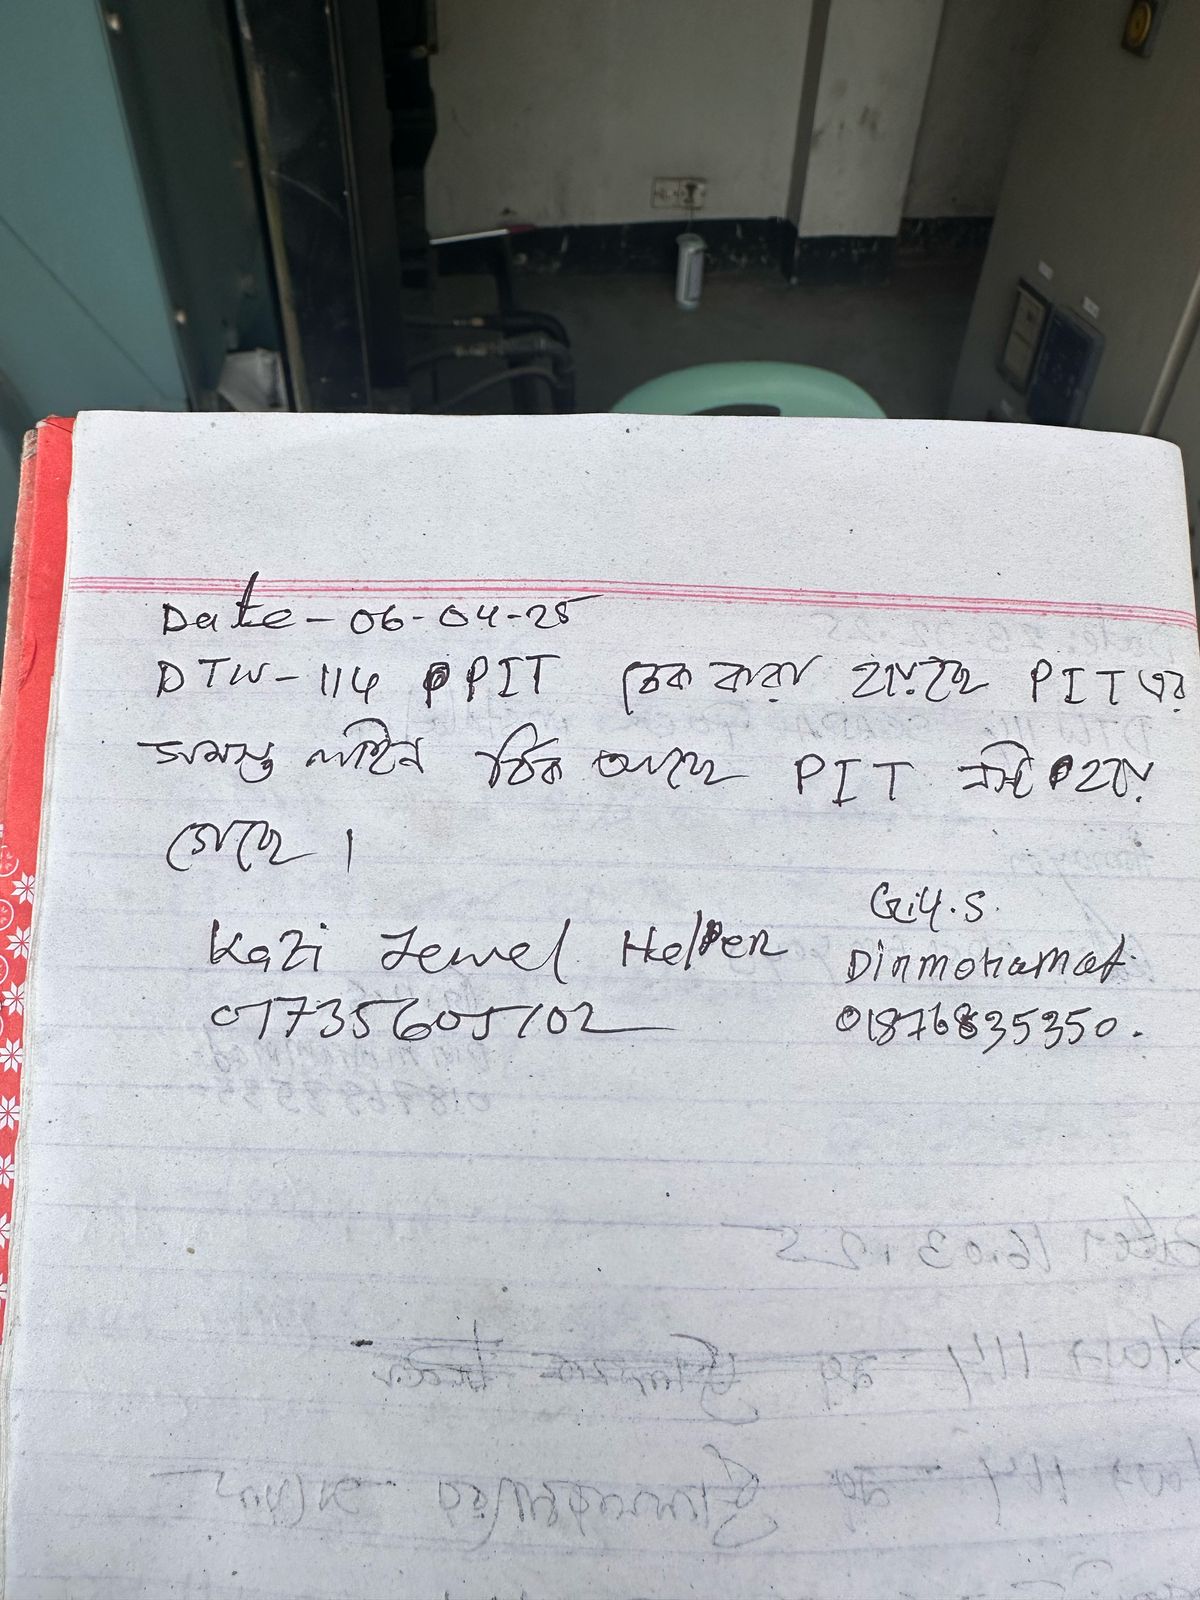 Date - 06-04-25
DTW-114 PPIT চেক করা হয়েছে PIT এর
সমস্ত লাইন ঠিক আছে PIT নষ্ট হয়ে
গেছে।
Kazi Jewel Helper
01735605702
G.U.S.
Dinmohamad.
01876835350.